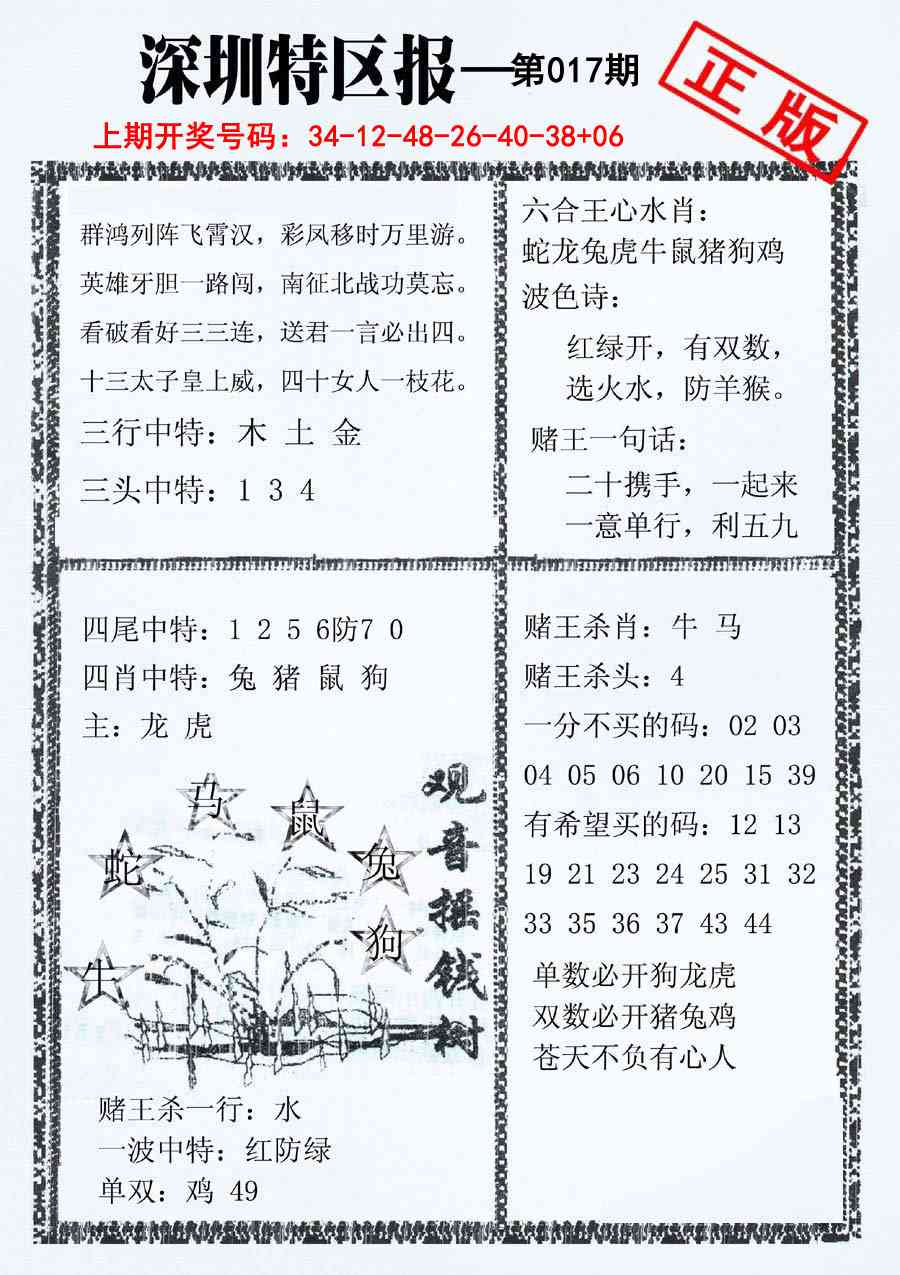 深圳特区报—第017期
正版
上期开奖号码：34-12-48-26-40-38+06
群鸿列阵飞霄汉，彩凤移时万里游。
英雄牙胆一路闯，南征北战功莫忘。
看破看好三三连，送君一言必出四。
十三太子皇上威，四十女人一枝花。
三行中特：木 土 金
三头中特：1 3 4
六合王心水肖：
蛇龙兔虎牛鼠猪狗鸡
波色诗：
红绿开，有双数，
选火水，防羊猴。
赌王一句话：
二十携手，一起来
一意单行，利五九
四尾中特：1 2 5 6防7 0
四肖中特：兔 猪 鼠 狗
主：龙 虎
马
鼠
蛇
兔
狗
牛
观音摇钱树
赌王杀一行：水
一波中特：红防绿
单双：鸡 49
赌王杀肖：牛 马
赌王杀头：4
一分不买的码：02 03
04 05 06 10 20 15 39
有希望买的码：12 13
19 21 23 24 25 31 32
33 35 36 37 43 44
单数必开狗龙虎
双数必开猪兔鸡
苍天不负有心人